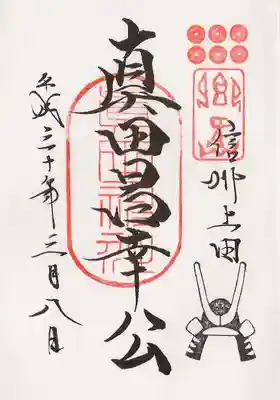 信州上田
真田昌幸公
平成三十年三月八日